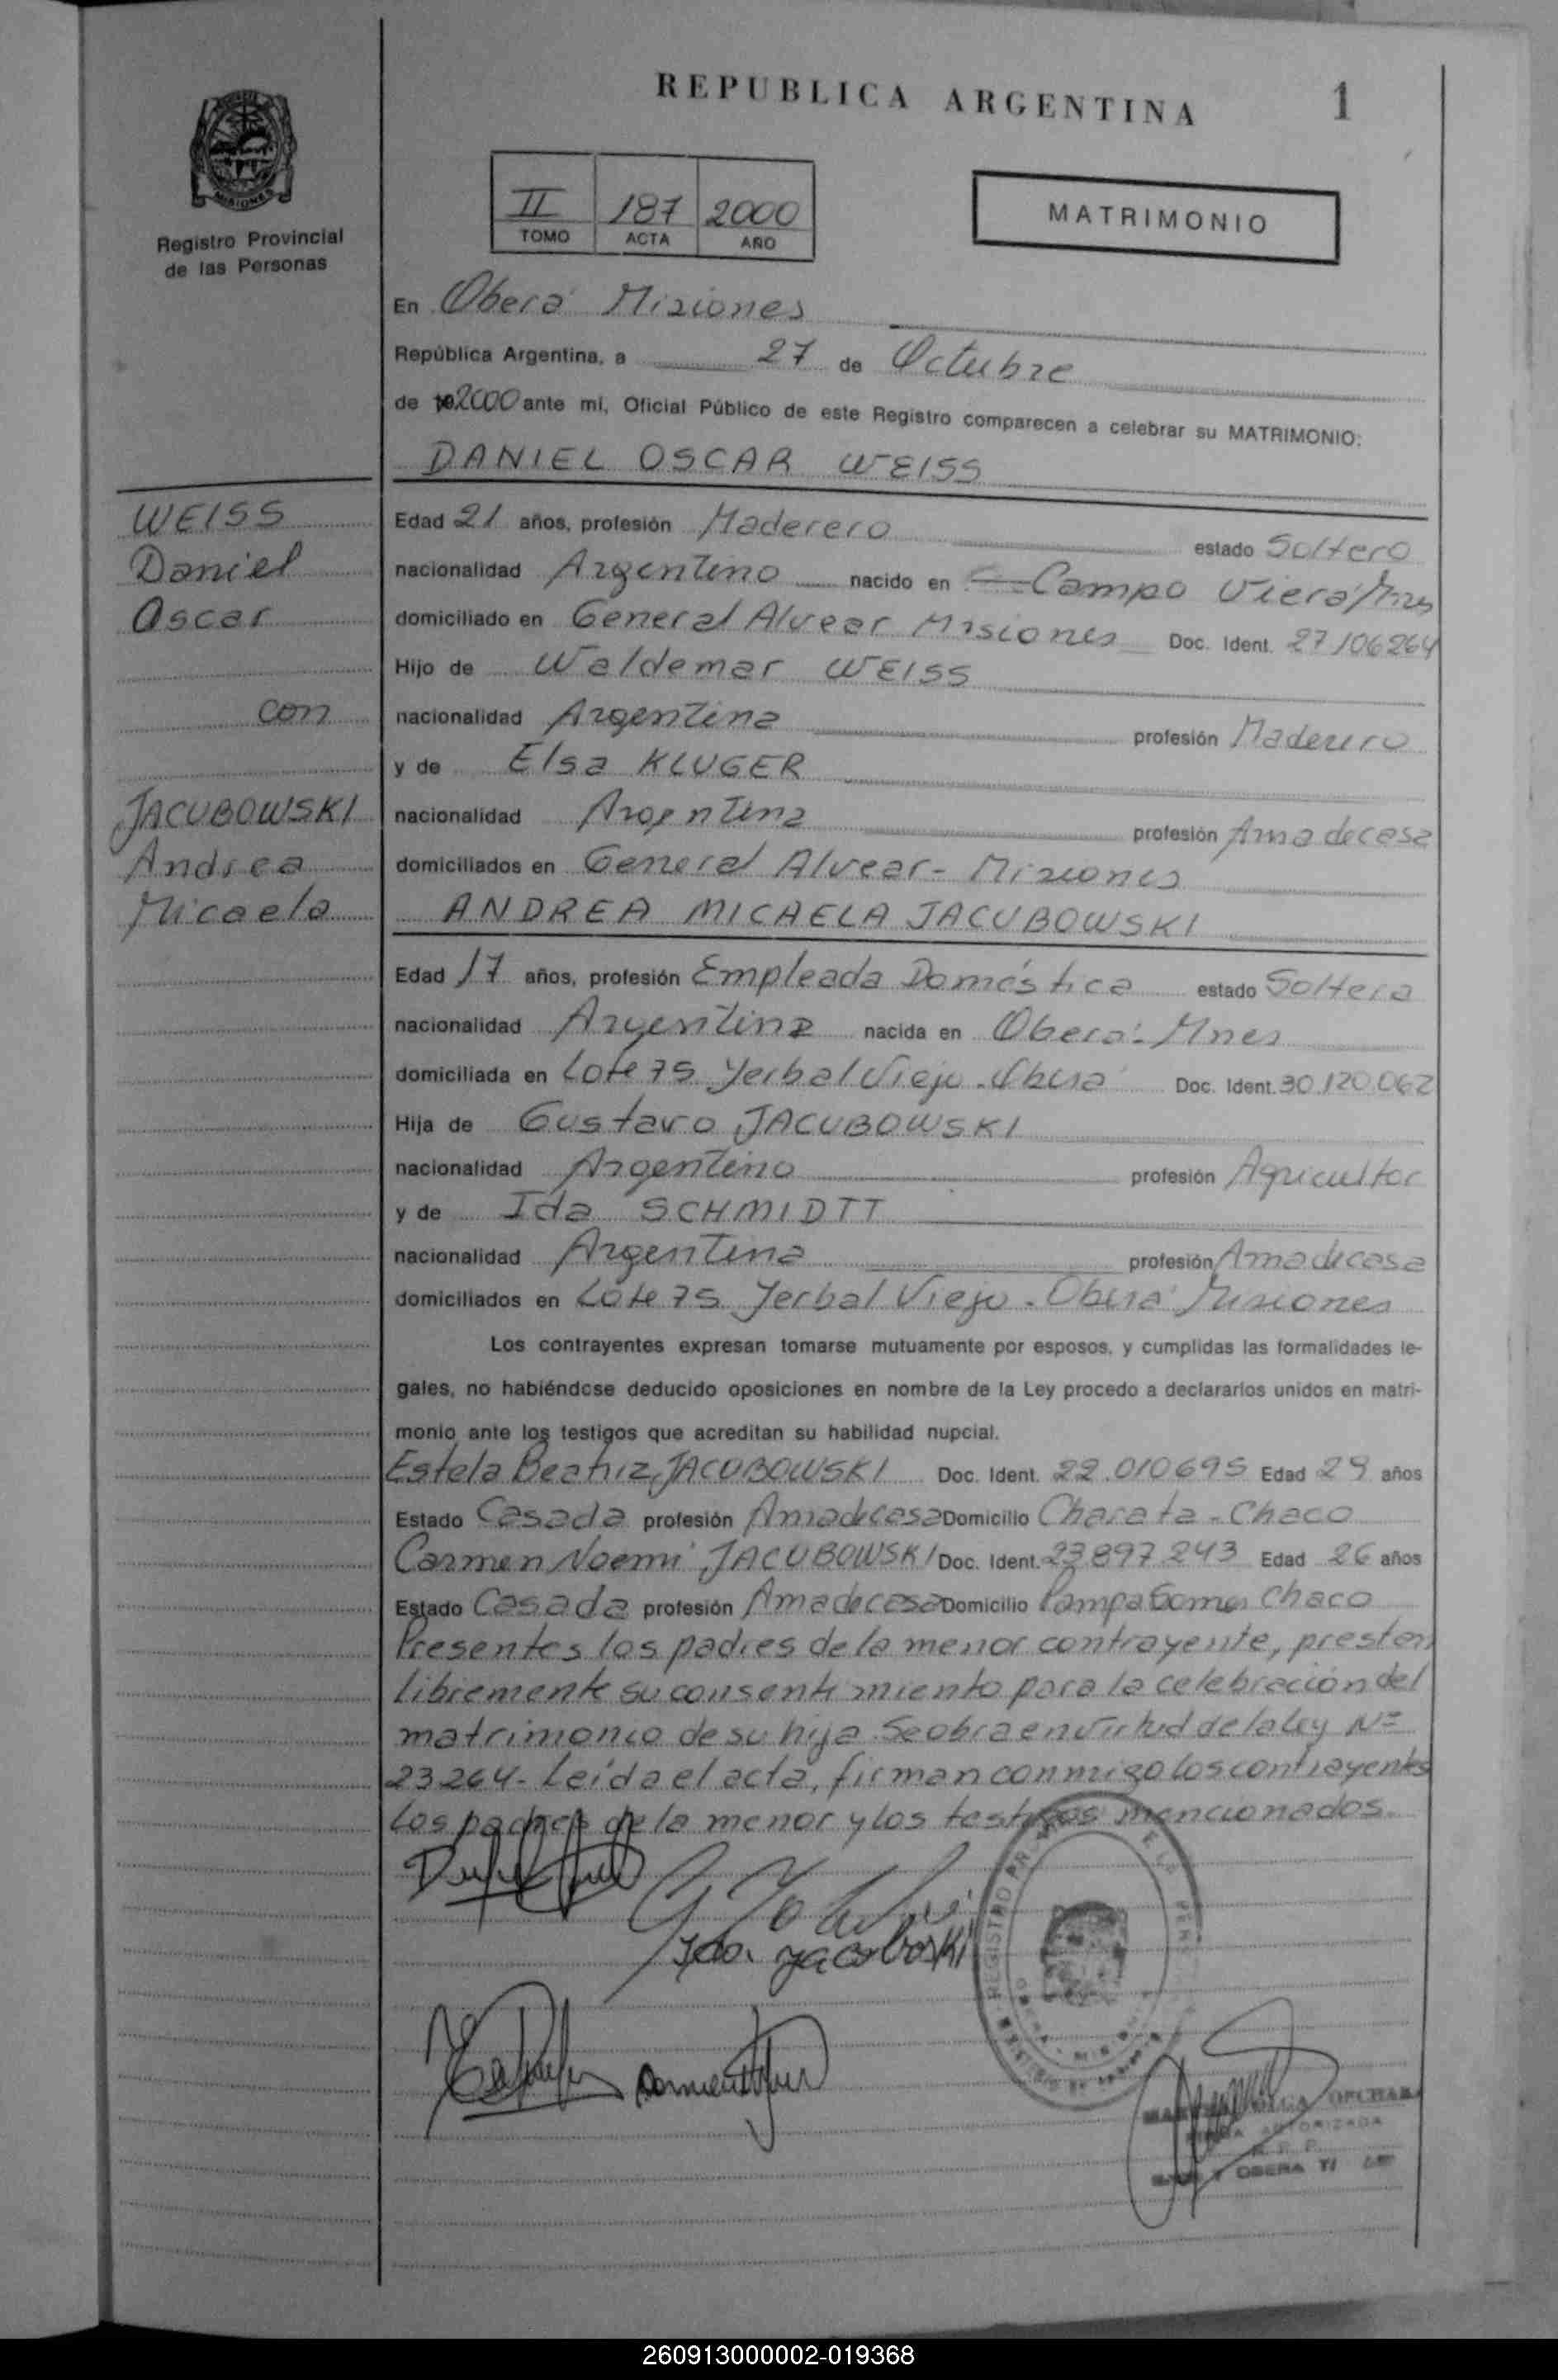 REPUBLICA ARGENTINA
1
MISIONES
Registro Provincial
de las Personas
II 187 2000
TOMO ACTA AÑO
MATRIMONIO
En Oberá Misiones
República Argentina, a 27 de Octubre
de 2000 ante mí, Oficial Público de este Registro comparecen a celebrar su MATRIMONIO:
DANIEL OSCAR WEISS
WEISS
Daniel
Oscar
con
JACUBOWSKI
Andrea
Micaela
Edad 21 años, profesión Maderero estado Soltero
nacionalidad Argentino nacido en Campo Viera Mnes
domiciliado en General Alvear Misiones Doc. Ident. 27106264
Hijo de Waldemar WEISS
nacionalidad Argentina profesión Maderero
y de Elsa KLUGER
nacionalidad Argentina profesión Ama de casa
domiciliados en General Alvear - Misiones
ANDREA MICAELA JACUBOWSKI
Edad 17 años, profesión Empleada Doméstica estado Soltera
nacionalidad Argentina nacida en Oberá - Mnes
domiciliada en Lote 75 Yerbal Viejo - Oberá Doc. Ident. 30.120.062
Hija de Gustavo JACUBOWSKI
nacionalidad Argentino profesión Agricultor
y de Ida SCHMIDTT
nacionalidad Argentina profesión Ama de casa
domiciliados en Lote 75 Yerbal Viejo - Oberá Misiones
Los contrayentes expresan tomarse mutuamente por esposos, y cumplidas las formalidades le-
gales, no habiéndose deducido oposiciones en nombre de la Ley procedo a declararlos unidos en matri-
monio ante los testigos que acreditan su habilidad nupcial.
Estela Beatriz JACUBOWSKI Doc. Ident. 22.010695 Edad 29 años
Estado Casada profesión Ama de casa Domicilio Charata - Chaco
Carmen Noemí JACUBOWSKI Doc. Ident. 23897243 Edad 26 años
Estado Casada profesión Ama de casa Domicilio Pampa Chaco
Presentes los padres de la menor contrayente, prestan
libremente su consentimiento para la celebración del
matrimonio de su hija. Se obra en virtud de la ley Nº
23264 - Leída el acta, firman conmigo los contrayentes
los padres de la menor y los testigos mencionados.
Ida
OBERA
260913000002-019368